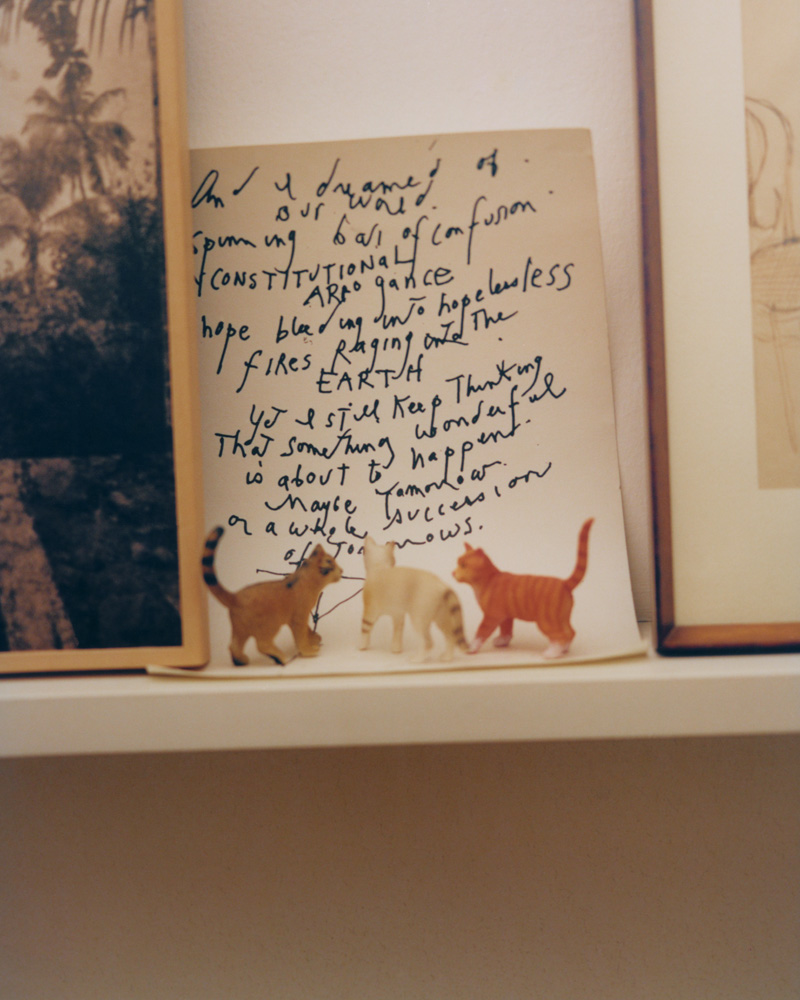 And I dreamed of.
our world.
Spinning ball of confusion.
CONSTITUTIONAL
ARRogance
hope bleeding into hopelessless
fires Raging onto The
EARTH.
Yet I still Keep Thinking
That something wonderful
is about to happen.
Maybe Tomorrow.
or a whole succession
of Tomorrows.